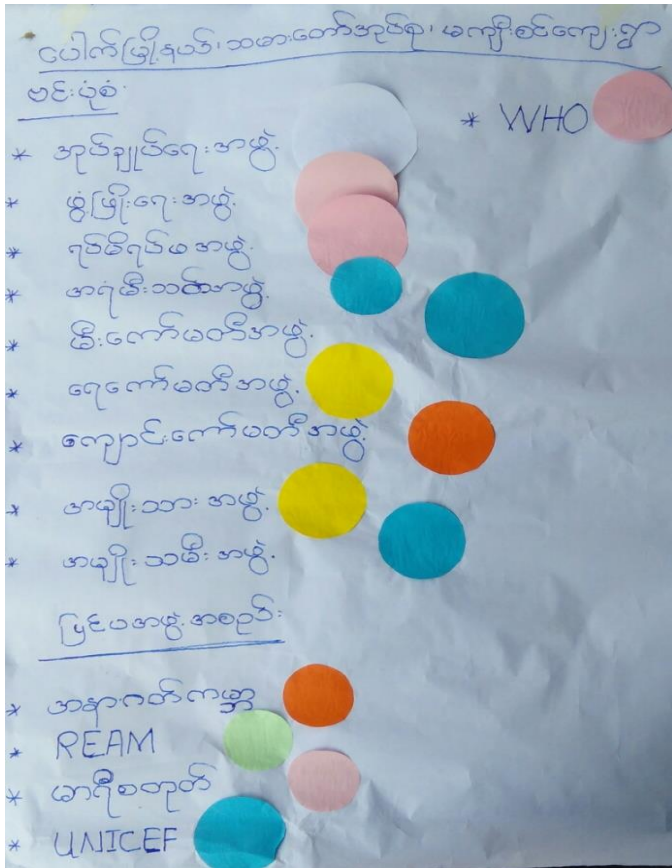 ပေါက်မြို့နယ်၊ သမားတော်အုပ်စု၊ မကျီးစင်ကျေးရွာ
ဗင်းပုံစံ
* WHO
* အုပ်ချုပ်ရေးအဖွဲ့
* ဖွံ့ဖြိုးရေးအဖွဲ့
* ရပ်မိရပ်ဖအဖွဲ့
* အရံမီးသတ်အဖွဲ့
* မီးကော်မတီအဖွဲ့
* ရေကော်မတီအဖွဲ့
* ကျောင်းကော်မတီအဖွဲ့
* အမျိုးသားအဖွဲ့
* အမျိုးသမီးအဖွဲ့
ပြင်ပအဖွဲ့အစည်း
* အနာဂတ်ကမ္ဘာ
* REAM
* မာရီစတုတ်
* UNICEF